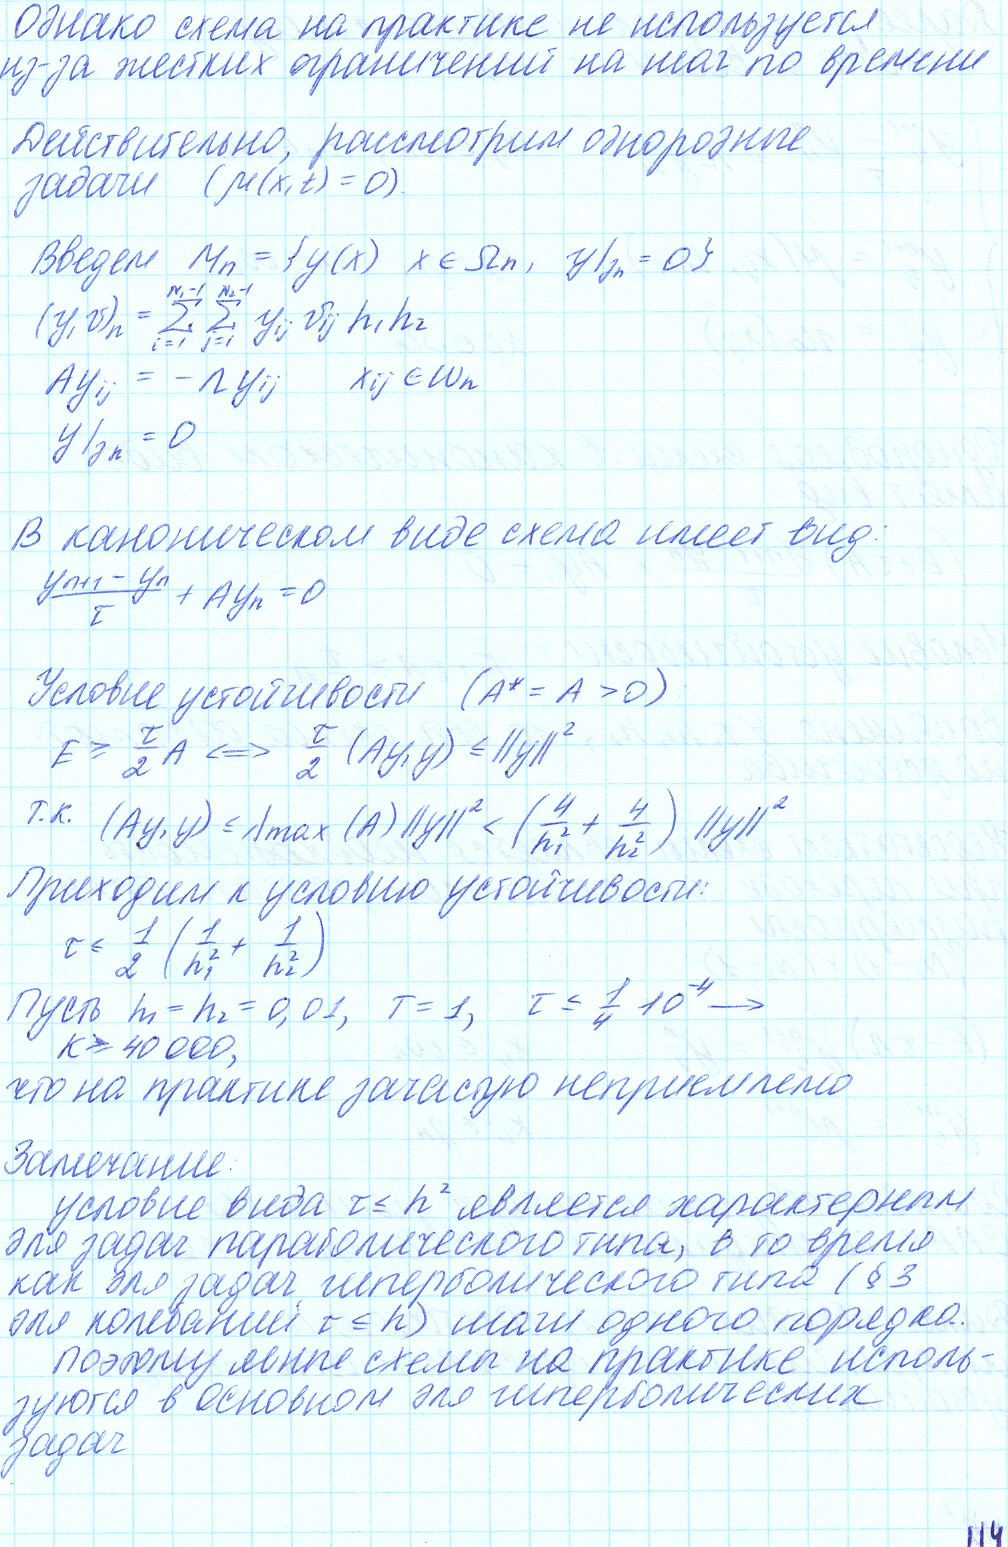 Однако схема на практике не используется
из-за жестких ограничений на шаг по времени
Действительно, рассмотрим однородные
задачи (μ(x,t) = 0).
Введем Hₕ = {y(x) x ∈ Ωₕ, y|γₕ = 0}
(y,v)ₕ = Σ_{i=1}^{N₁-1} Σ_{j=1}^{N₂-1} yᵢⱼ vᵢⱼ h₁h₂
Ayᵢⱼ = -Λyᵢⱼ xᵢⱼ ∈ ωₕ
y|γₕ = 0
В каноническом виде схема имеет вид:
(yₙ₊₁ - yₙ)/τ + Ayₙ = 0
Условие устойчивости (A* = A > 0)
E ≥ τ/2 A <=> τ/2 (Ay,y) ≤ ||y||²
т.к. (Ay,y) ≤ λmax(A)||y||² < (4/h₁² + 4/h₂²) ||y||²
Приходим к условию устойчивости:
τ ≤ 1/2 (1/h₁² + 1/h₂²)
Пусть h₁ = h₂ = 0,01, T = 1, τ ≤ 1/4 10⁻⁴ →
K ≥ 40 000,
что на практике зачастую неприемлемо
Замечание:
условие вида τ ≤ h² является характерным
для задач параболического типа, в то время
как для задач гиперболического типа (§3
для колебаний τ ≤ h) шаги одного порядка.
Поэтому явные схемы на практике исполь-
зуются в основном для гиперболических
задач
114